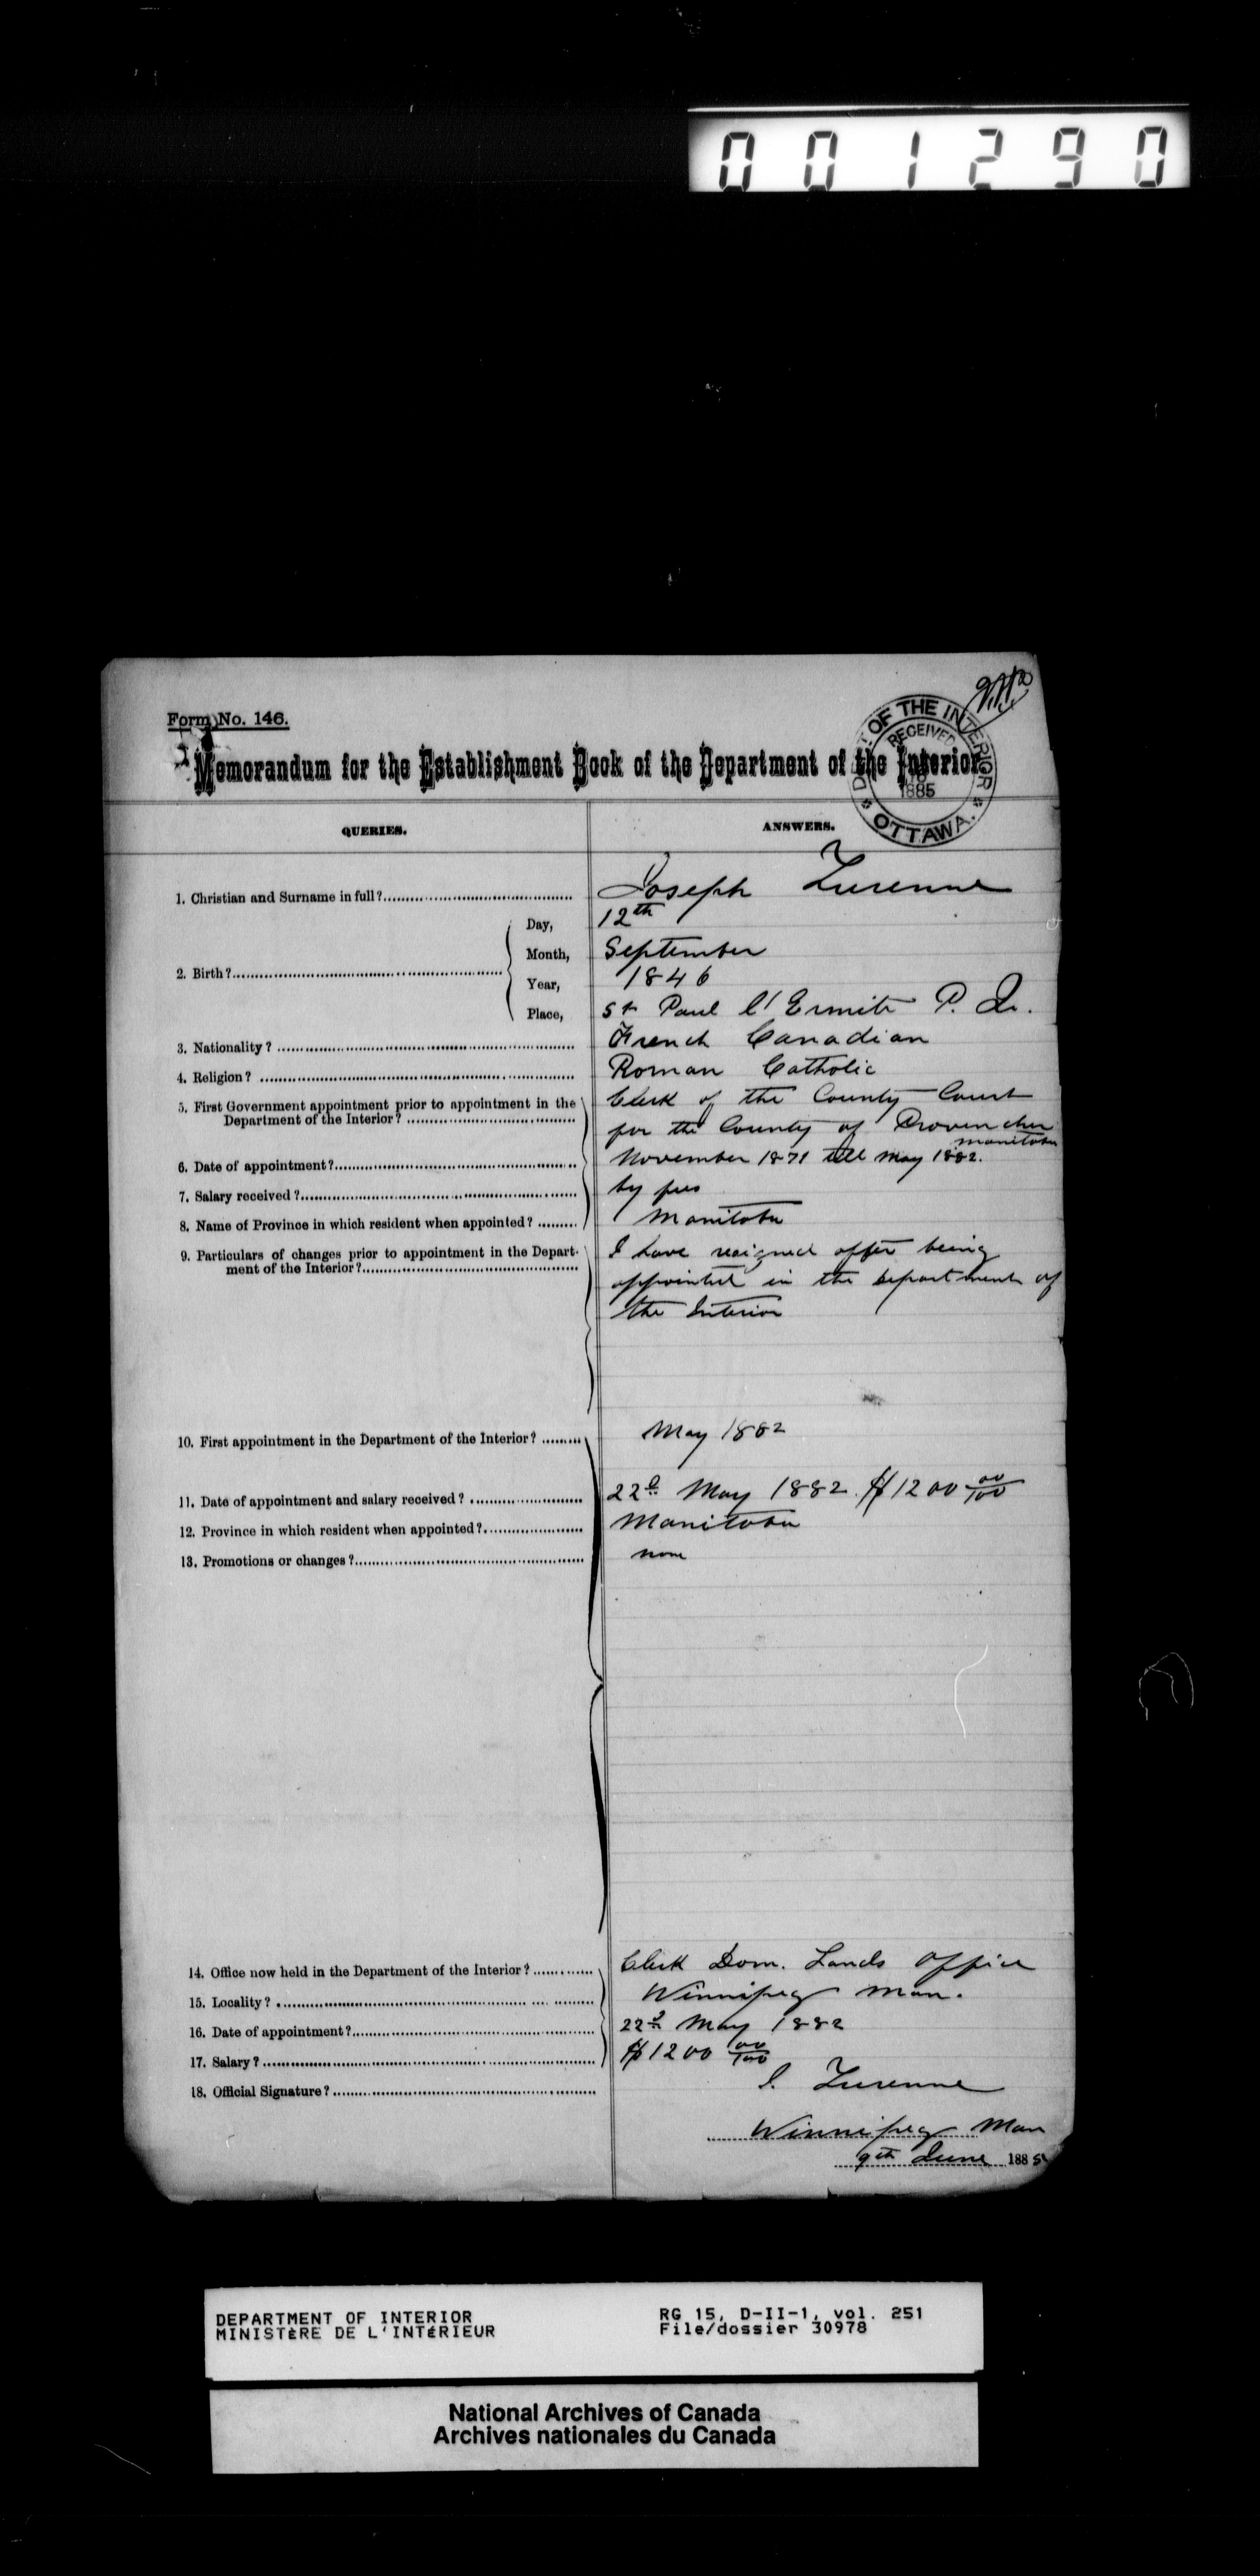 001290
Form No. 146.
Memorandum for the Establishment Book of the Department of the Interior
DEPT OF THE INTERIOR
RECEIVED
1885
OTTAWA.
QUERIES.
ANSWERS.
1. Christian and Surname in full?
Joseph Turenne
2. Birth?
Day,
12th
Month,
September
Year,
1846
Place,
St Paul l'Ermite P. Q.
3. Nationality?
French Canadian
4. Religion?
Roman Catholic
5. First Government appointment prior to appointment in the
Department of the Interior?
Clerk of the County Court
for the County of Provencher
Manitoba
6. Date of appointment?
November 1871 till May 1882.
7. Salary received?
by fees
8. Name of Province in which resident when appointed?
Manitoba
9. Particulars of changes prior to appointment in the Depart-
ment of the Interior?
I have resigned after being
appointed in the Department of
the Interior
10. First appointment in the Department of the Interior?
May 1882
11. Date of appointment and salary received?
22d May 1882. $1200 00/100
12. Province in which resident when appointed?
Manitoba
13. Promotions or changes?
none
14. Office now held in the Department of the Interior?
Clerk Dom. Lands Office
15. Locality?
Winnipeg Man.
16. Date of appointment?
22d May 1882
17. Salary?
$1200 00/100
18. Official Signature?
J. Turenne
Winnipeg Man
9th June 1885
DEPARTMENT OF INTERIOR
MINISTÈRE DE L'INTÉRIEUR
RG 15, D-II-1, vol. 251
File/dossier 30978
National Archives of Canada
Archives nationales du Canada